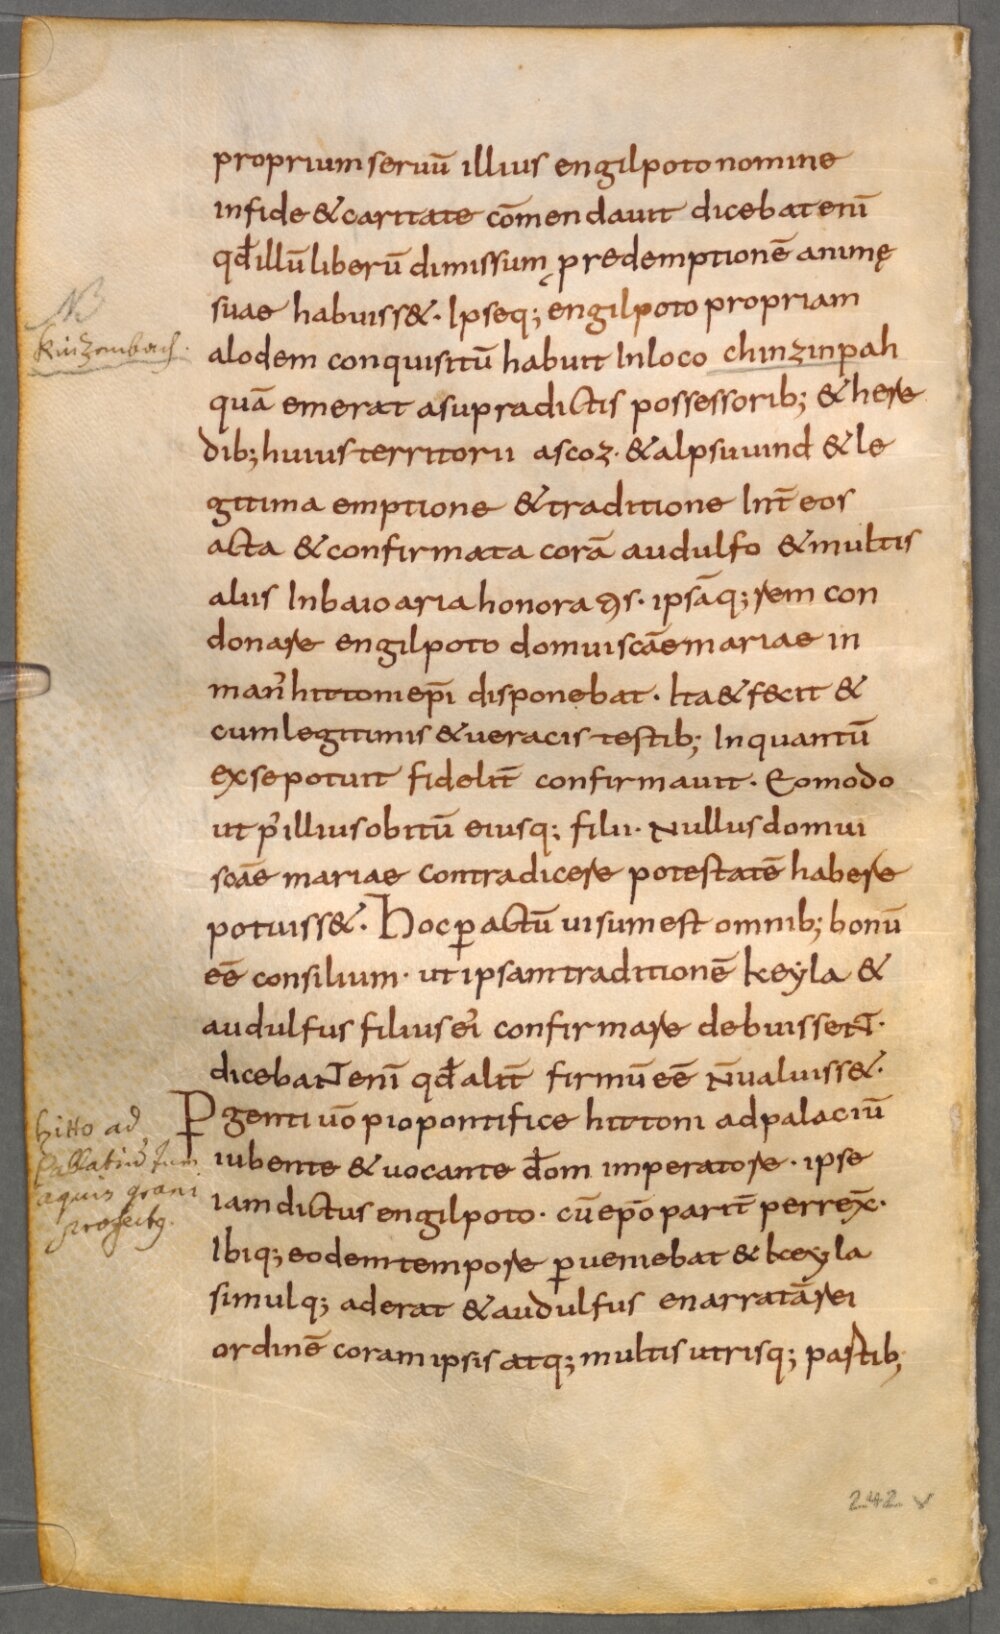 propriumseruū illius engilpoto nomine
infide & caritate cōmendauit dicebat enī
qđ illū liberū dimissum ꝓ redemptionē animę
suae habuiss&. Ipseq; engilpoto propriam
NB
Kinzenbach.
alodem conquisitū habuit Inloco chinzinpah
quā emerat asupradictis possessorib; & here
dib; huius territorii ascoz. & alpsuuind & le
gitima emptione & traditione Int̄ eos
acta & confirmata corā audulfo & multis
aliis Inbaioaria honoratꝯs. ipsāq; rem con
donare engilpoto domui scāe mariae in
man᾽ hittoni ep̄i disponebat. Ita & fecit &
cum legitimis & ueracis testib; Inquantū
exse potuit fidelit̄ confirmauit. Eomodo
ut p᾽ illius obitū eiusq; filii. Nullus domui
scāe mariae contradicere potestatē habere
potuiss&. Hoc ꝑactū uisum est omnib; bonū
eē consilium. ut ipsam traditionē keẏla &
audulfus filius ei᾽ confirmare debuissent̄.
dicebant enī qđ alit̄ firmū eē n̄ ualuiss&.
hitto ad
Pallatiū tum
aquis grani
profectꝯ.
Pgenti uō pio pontifice hittoni ad palaciū
iubente & uocante dōm imperatore. ipse
iamdictus engilpoto. cū ep̄o parit̄ perrex̄.
Ibiq; eodem tempore ꝑueniebat & keyla
simulq; aderat & audulfus enarratā rei
ordinē coram ipsis atq; multis utrisq; partib;
242 v